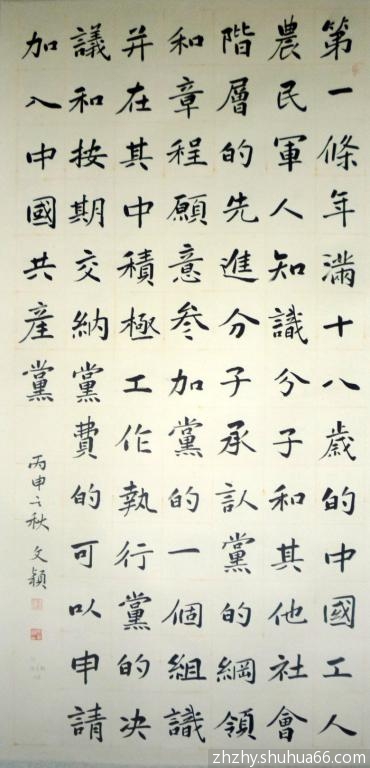 第一條年滿十八歲的中國工人
農民軍人知識分子和其他社會
階層的先進分子承認黨的綱領
和章程願意參加黨的一個組識
并在其中積極工作執行黨的决
議和按期交納黨費的可以申請
加入中國共產黨
丙申之秋 文穎
zhzhy.shuhua66.com